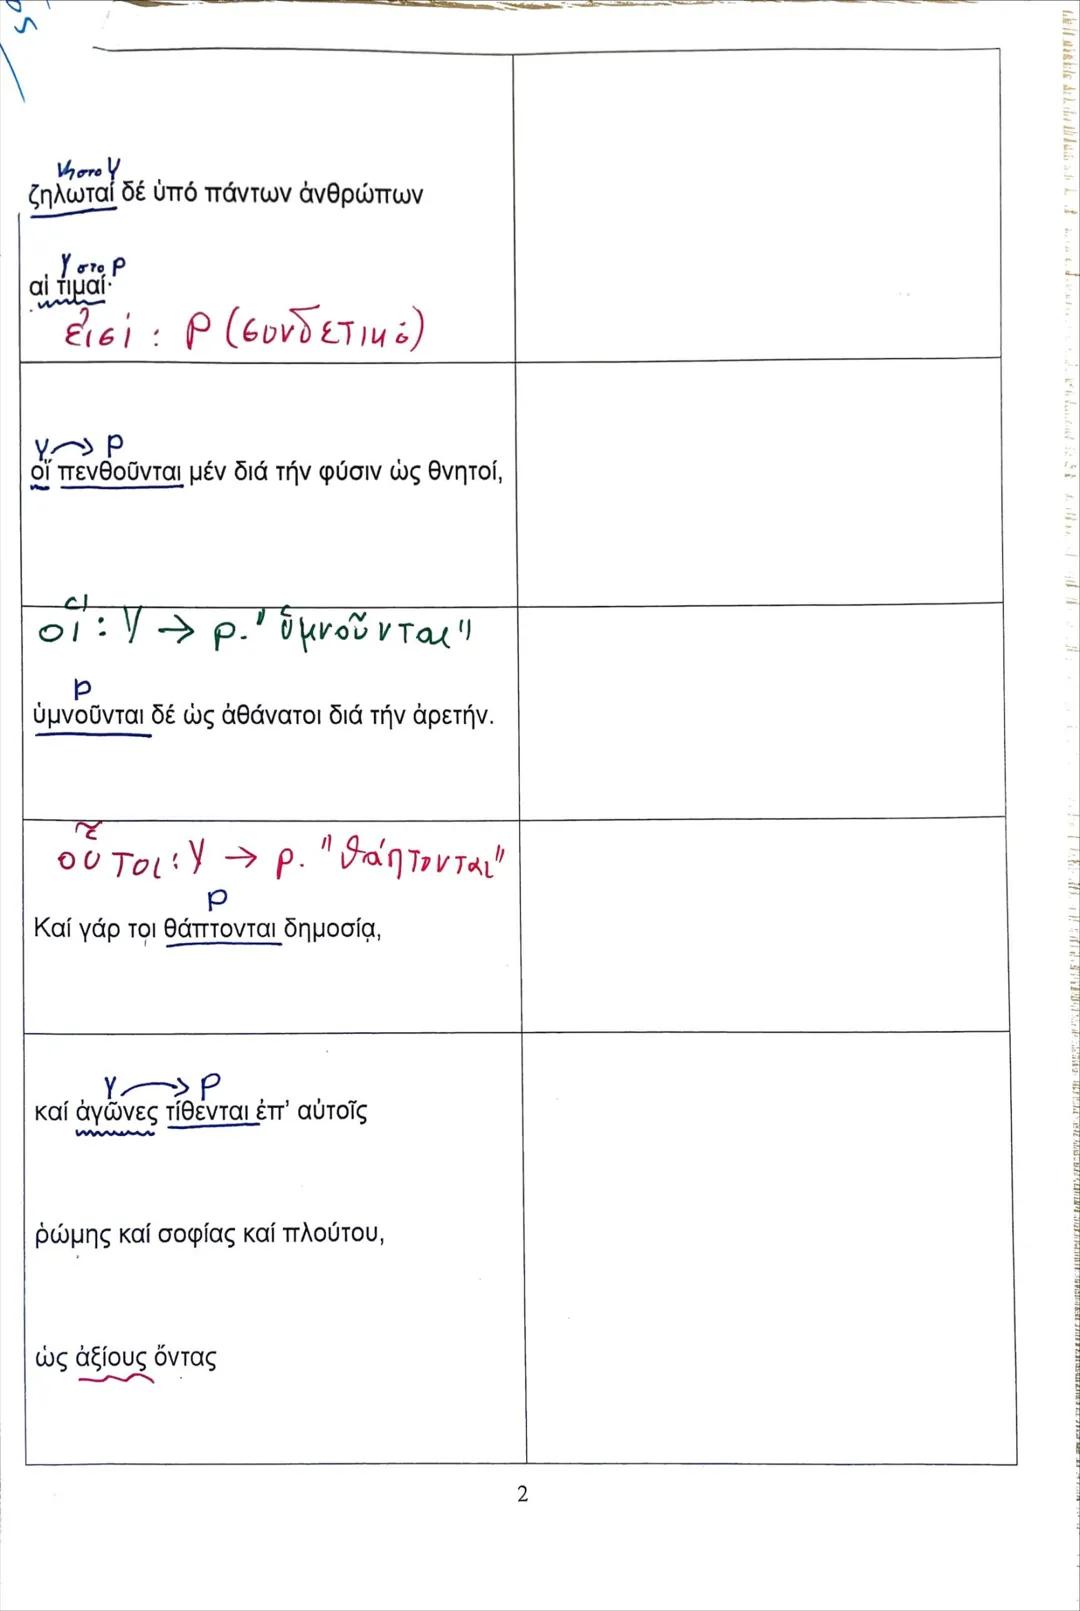 Κ στο Υ
ζηλωταί δέ ὑπό πάντων ἀνθρώπων
Υ στο Ρ
αἱ τιμαί·
εἰσί : Ρ (συνδετικό)
Υ → Ρ
οἵ πενθοῦνται μέν διά τήν φύσιν ὡς θνητοί,
οἵ : Υ → ρ. "ὑμνοῦνται"
Ρ
ὑμνοῦνται δέ ὡς ἀθάνατοι διά τήν ἀρετήν.
οὗτοι : Υ → ρ. "θάπτονται"
Ρ
Καί γάρ τοι θάπτονται δημοσίᾳ,
Υ → Ρ
καί ἀγῶνες τίθενται ἐπ' αὐτοῖς
ῥώμης καί σοφίας καί πλούτου,
ὡς ἀξίους ὄντας
2